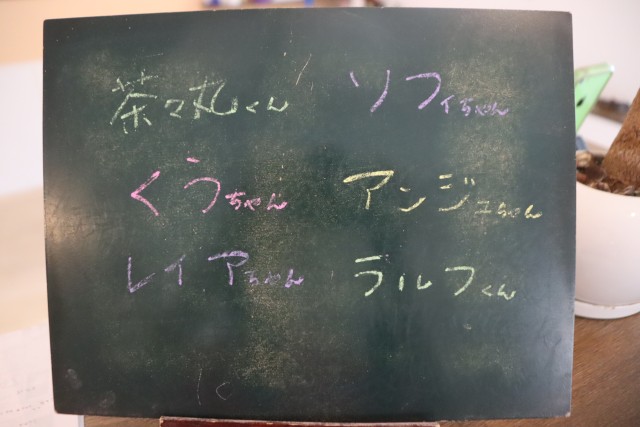 茶々丸くん ソフィちゃん
くうちゃん アンジュちゃん
レイアちゃん ラルフくん